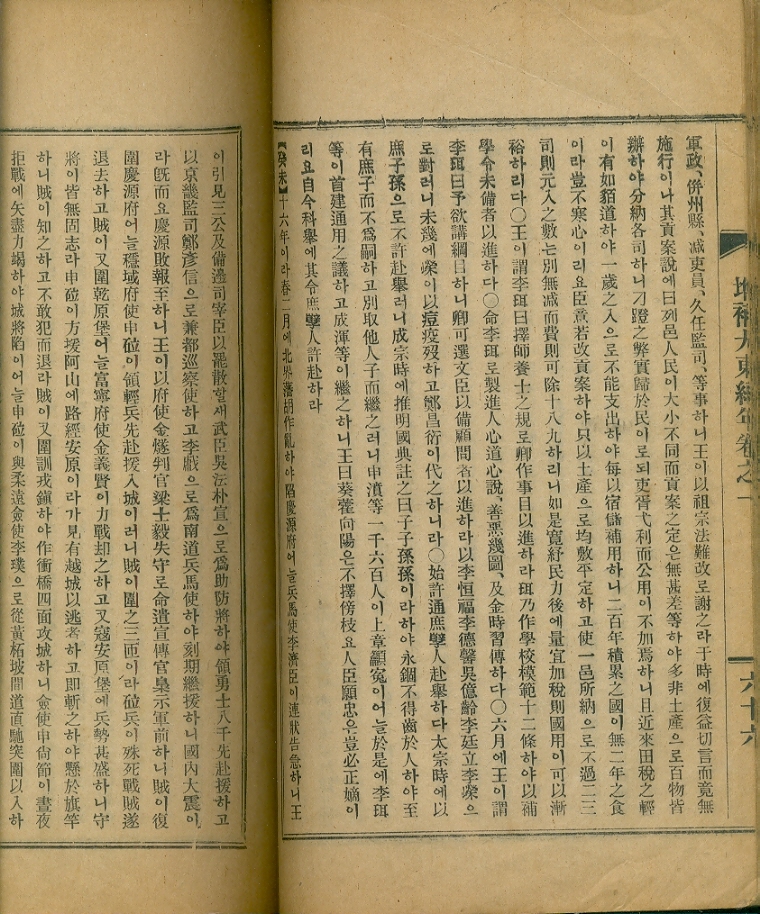 增補大東紀年卷之一
六十六
軍政、併州縣、减吏員、久任監司、等事하니王이以祖宗法難改로謝之라于時에復益切言而竟無
施行이나其貢案說에曰列邑人民이大小不同而貢案之定은無甚差等하야多非土產으로百物皆
辦하야分納各司하니刁蹬之弊實歸於民이로되吏胥弋利而公用이不加焉하니且近來田稅之輕
이有如貊道하야一歲之入으로不能支出하야每以宿儲補用하니二百年積累之國이無二年之食
이라豈不寒心이리요臣意若改貢案하야只以土產으로均敷平定하고使一邑所納으로不過二三
司則元入之數는別無减而費則可除十八九하리니如是寬紓民力後에量宜加稅則國用이可以漸
裕하리다〇王이謂李珥曰擇師養士之規로卿作事目以進하라珥乃作學校模範十二條하야以補
學令未備者以進하다〇命李珥로製進人心道心說、善惡幾圖、及金時習傳하다〇六月에王이謂
李珥曰予欲講綱目하니卿可選文臣以備顧問者以進하라以李恒福李德馨吳億齡李廷立李嶸으
로對러니未幾에嶸이以痘疫歿하고鄭昌衍이代之하니라〇始許通庶孼人赴擧하다太宗時에以
庶子孫으로不許赴擧러니成宗時에推明國典註之曰子子孫孫이라하야永錮不得齒於人하야至
有庶子而不爲嗣하고別取他人子而繼之러니申濆等一千六百人이上章籲寃이어늘於是에李珥
等이首建通用之議하고成渾等이繼之하니王曰葵藿向陽은不擇傍枝요人臣願忠은豈必正嫡이
리요自今科擧에其令庶孼人許赴하라
【癸未】十六年이라春二月에北界藩胡作亂하야陷慶源府어늘兵馬使李濟臣이連狀告急하니王
이引見三公及備邊司宰臣以罷散할새武臣吳沄朴宣으로爲助防將하야領勇士八千先赴援하고
以京畿監司鄭彥信으로兼都巡察使하고李戩으로爲南道兵馬使하야刻期繼援하니國內大震이
라旣而요慶源敗報至하니王이以府使金燧判官梁士毅失守로命遣宣傳官梟示軍前하니賊이復
圍慶源府어늘穩城府使申砬이領輕兵先赴援入城이러니賊이圍之三匝이라砬兵이殊死戰賊遂
退去하고賊이又圍乾原堡어늘富寧府使金義賢이力戰却之하고又寇安原堡에兵勢甚盛하니守
將이皆無固志라申砬이方援阿山에路經安原이라가見有越城以逃者하고即斬之하야懸於旗竿
하니賊이知之하고不敢犯而退라賊이又圍訓戎鎭하야作衝橋四面攻城하니僉使申尙節이晝夜
拒戰에矢盡力竭하야城將陷이어늘申砬이與柔遠僉使李璞으로從黃柘坡間道直馳突圍以入하